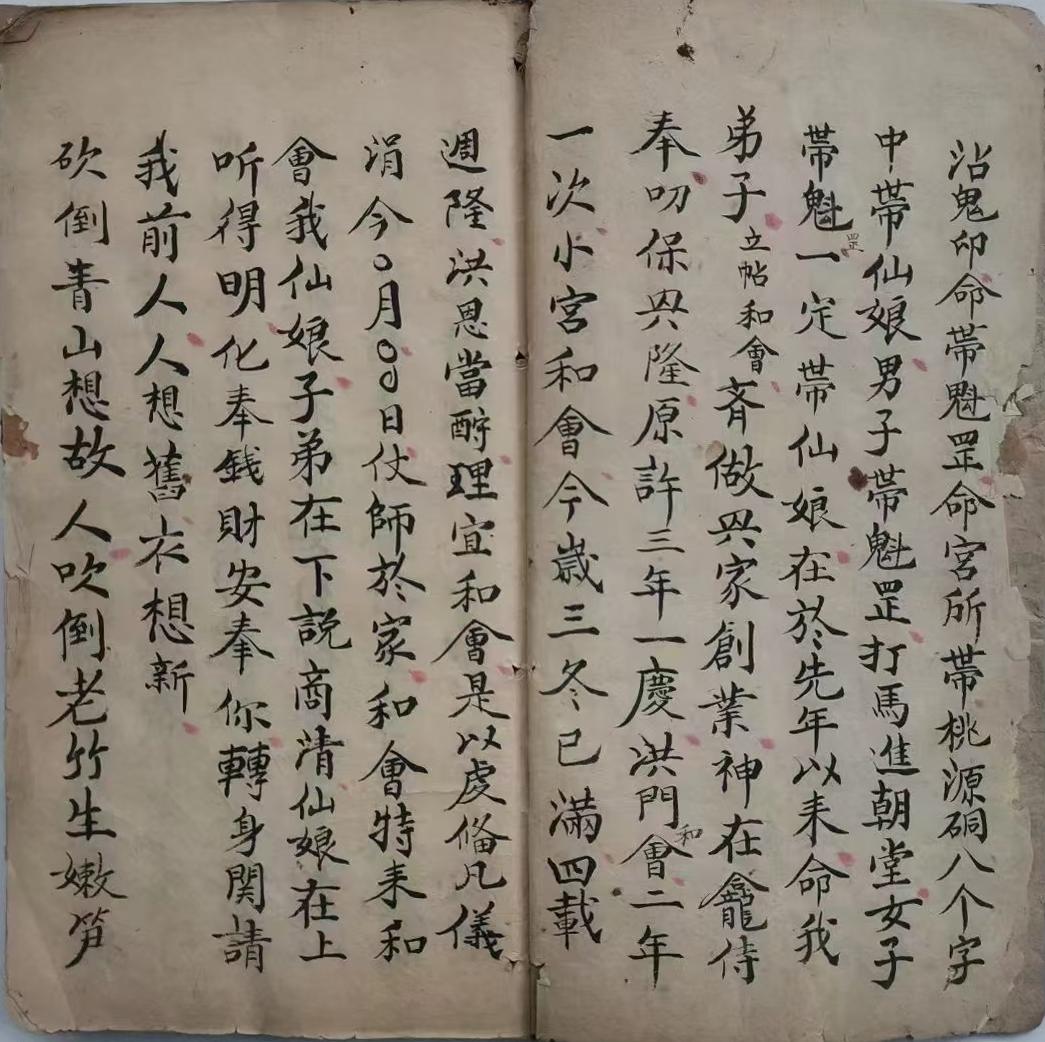 沾鬼卯命帶魁罡命宮所帶桃源硐八个字
中帶仙娘男子帶魁罡打馬進朝堂女子
帶魁罡一定帶仙娘在於先年以来命我
弟子立帖和會斉做兴家創業神在龕侍
奉叨保兴隆原許三年一慶洪門和會二年
一次小宮和會今歲三冬已滿四載
週隆洪恩當酧理宜和會是以虔俻凡儀
涓今〇月〇〇日仗師於家和會特来和
會我仙娘子弟在下說商清仙娘在上
听得明化奉錢財安奉你轉身関請
我前人人想舊衣想新
砍倒青山想故人吹倒老竹生嫩笋